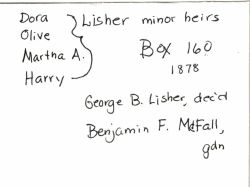 Dora
Olive
Martha A.
Harry
Lisher minor heirs
Box 160
1878
George B. Lisher, dec'd
Benjamin F. McFall,
gdn